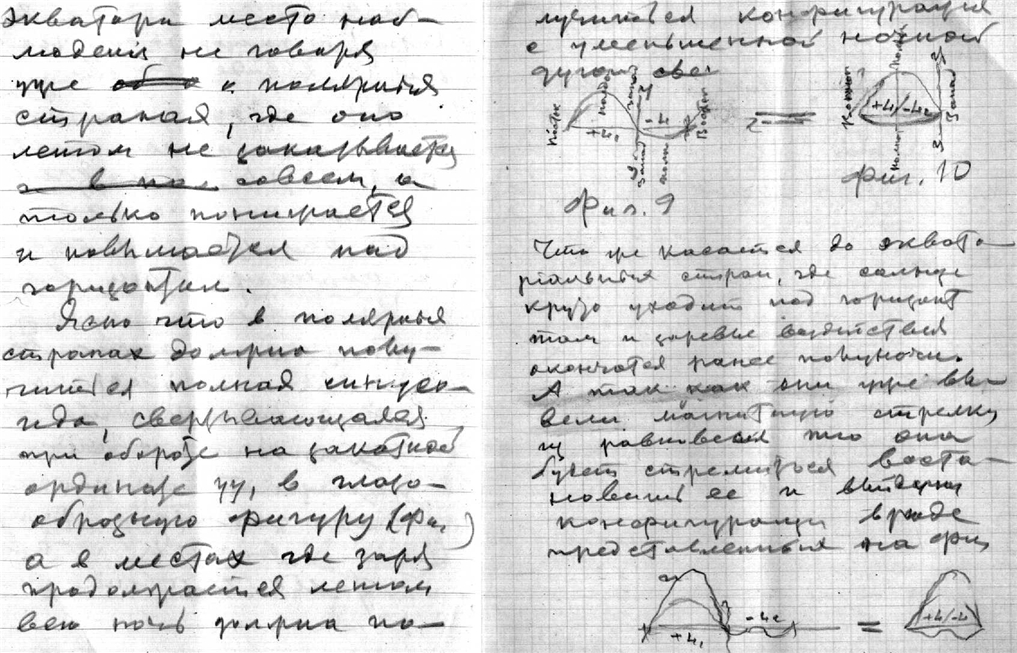 экватора место наб-
людения не говоря
уже о полярных
странах, где оно
летом не закатывается
совсем, а
только понижается
и повышается над
горизонтом.
Ясно что в полярных
странах должна полу-
читься полная синусо-
ида, свертывающаяся
при обороте на закатной
ординате уу, в глазо-
образную фигуру (Фиг )
а в местах где заря
продолжается летом
всю ночь должна по-
лучиться конфигурация
с уменьшенной ночной
дугой
Восток
Полдень
Запад
Восток
+4,
-4
Запад
Фиг. 9
=
+4/-4
Запад
Фиг. 10
Что же касается до эквато-
риальных стран, где солнце
круто уходит под горизонт
там и заревые воздействия
окончатся ранее полуночи.
А так как они уже вы-
вели магнитную стрелку
из равновесия то она
будет стремиться воста-
новить ее и выйдут
конфигурации вроде
представленных на фиг
+4,
-4
=
+4/-4